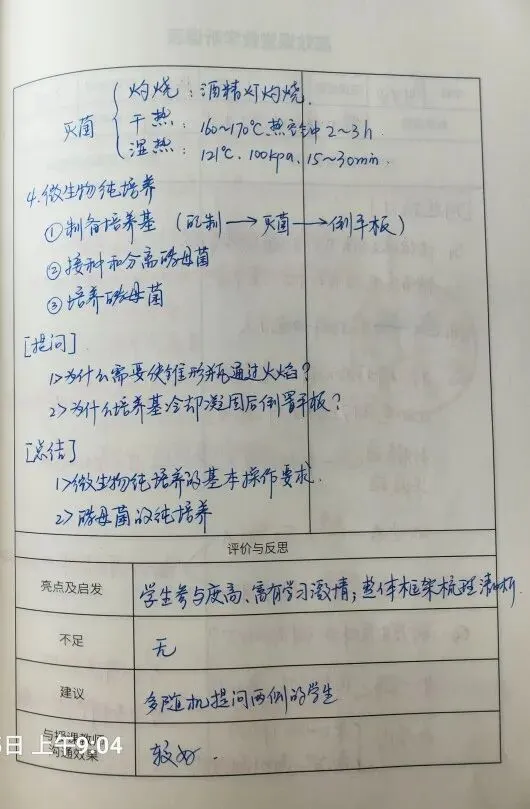 灼烧：酒精灯灼烧.
灭菌 干热：160~170℃热空气中2~3h.
湿热：121℃、100kpa、15~30min.
4.微生物纯培养
①制备培养基 (配制→灭菌→倒平板)
②接种和分离酵母菌
③培养酵母菌
[提问]
1>为什么需要使锥形瓶通过火焰?
2>为什么培养基冷却凝固后倒置平板?
[总结]
1>微生物纯培养的基本操作要求.
2>酵母菌的纯培养
评价与反思
亮点及启发 学生参与度高、富有学习激情；整体框架梳理清晰.
不足 无
建议 多随机提问两侧的学生
与授课教师
沟通效果 较好.
日 上午9:04